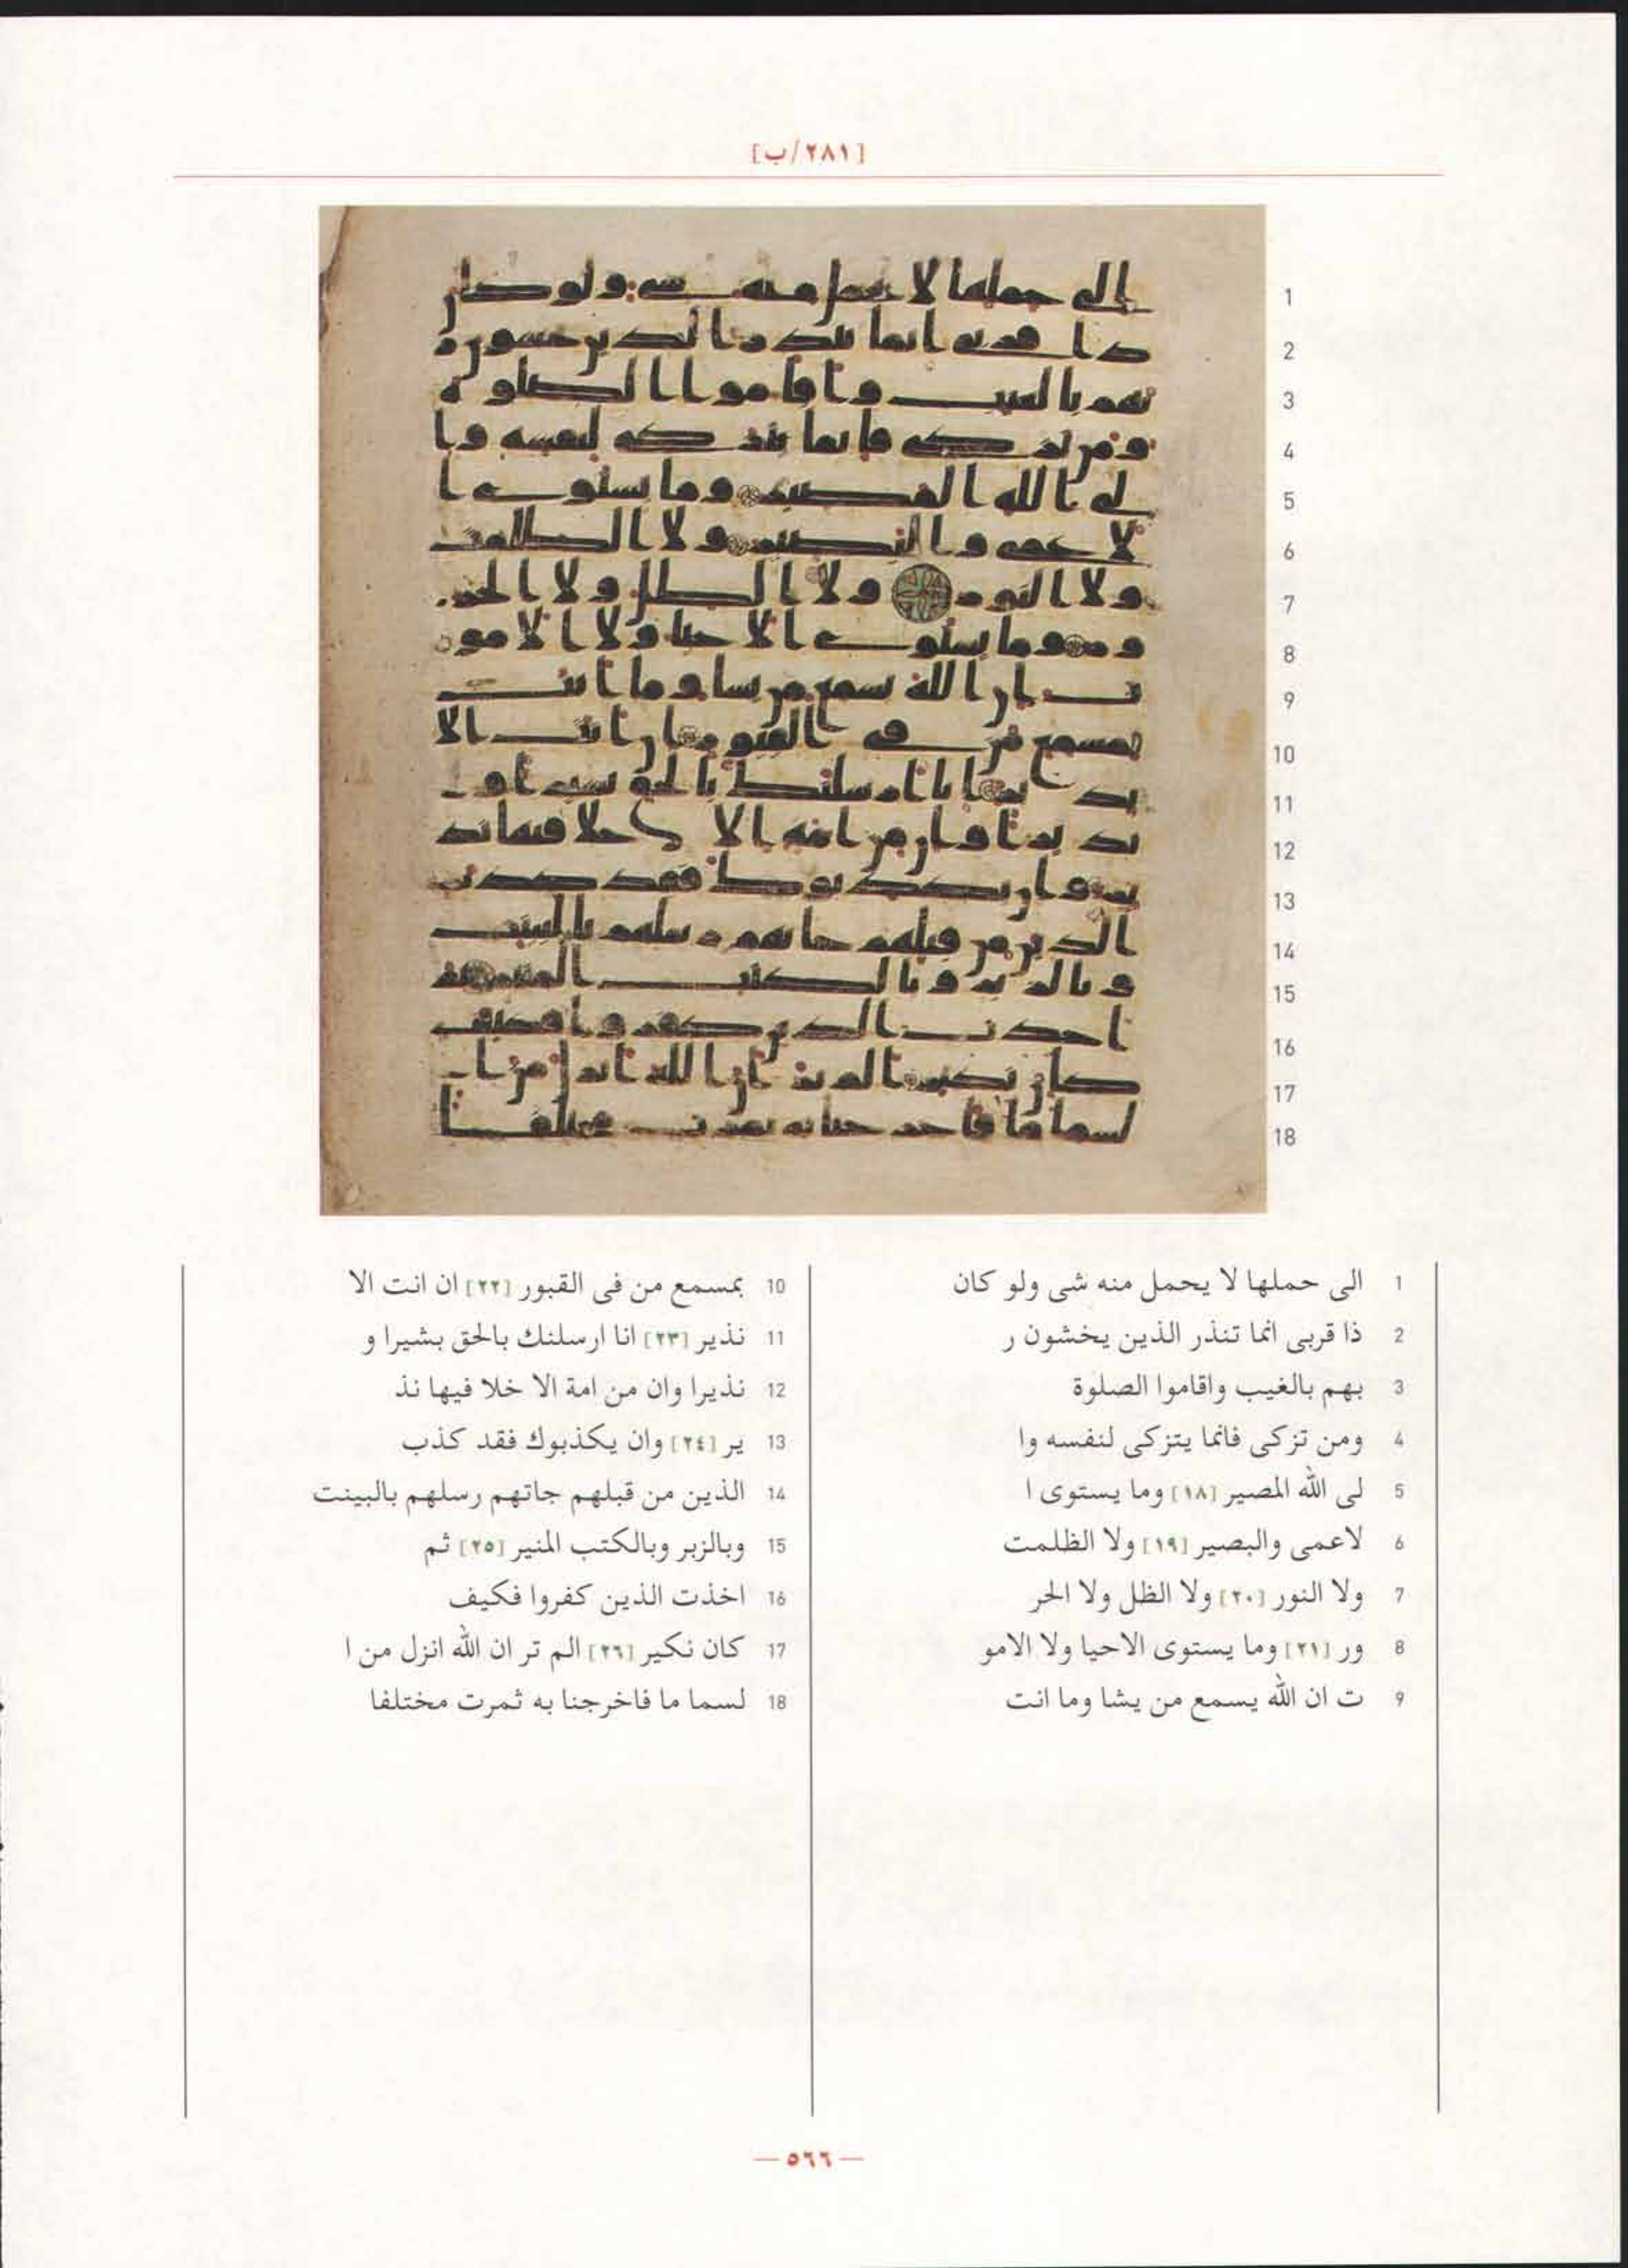 [٢٨١/ب]
1 الى حملها لا يحمل منه شى ولو كان
2 ذا قربى انما تنذر الذين يخشون ر
3 بهم بالغيب واقاموا الصلوة
4 ومن تزكى فانما يتزكى لنفسه وا
5 لى الله المصير [١٨] وما يستوى ا
6 لاعمى والبصير [١٩] ولا الظلمت
7 ولا النور [٢٠] ولا الظل ولا الحر
8 ور [٢١] وما يستوى الاحيا ولا الامو
9 ت ان الله يسمع من يشا وما انت
10 بمسمع من فى القبور [٢٢] ان انت الا
11 نذير [٢٣] انا ارسلنك بالحق بشيرا و
12 نذيرا وان من امة الا خلا فيها نذ
13 ير [٢٤] وان يكذبوك فقد كذب
14 الذين من قبلهم جاتهم رسلهم بالبينت
15 وبالزبر وبالكتب المنير [٢٥] ثم
16 اخذت الذين كفروا فكيف
17 كان نكير [٢٦] الم تر ان الله انزل من ا
18 لسما ما فاخرجنا به ثمرت مختلفا
— ٥٦٦ —